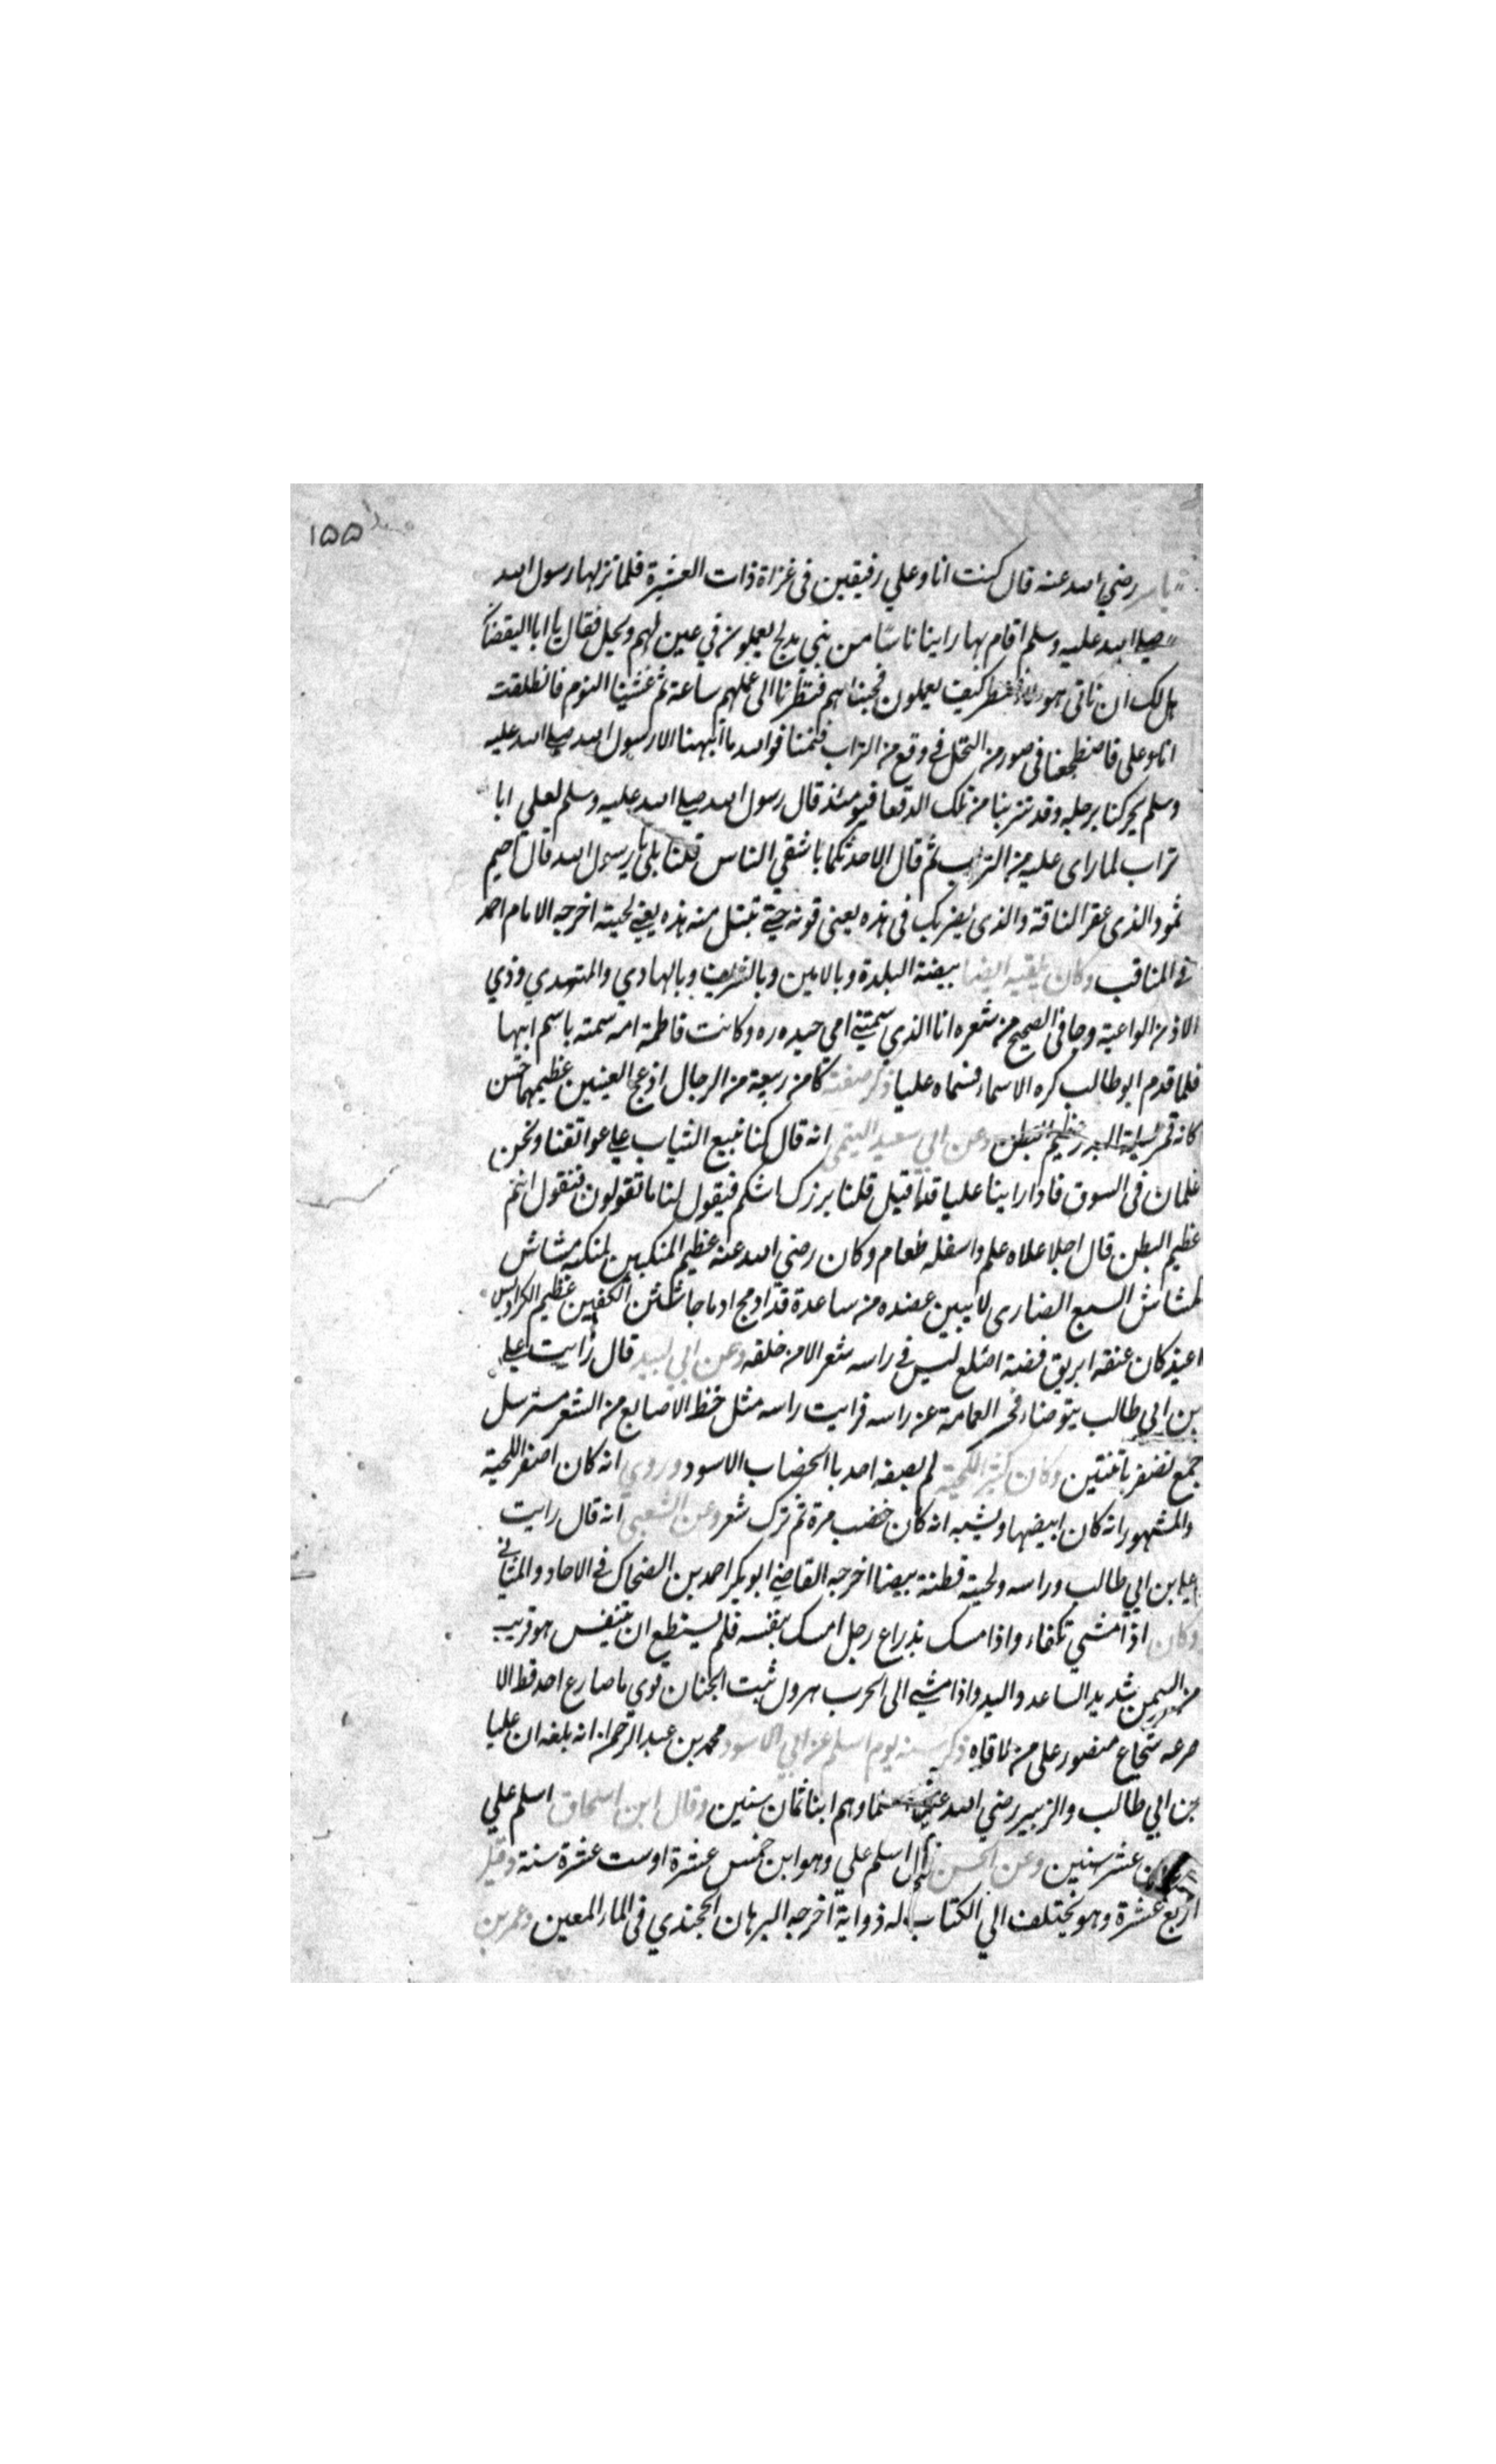 ۱۵۵
ياسر رضي الله عنه قال كنت انا وعلي رفيقين فى غزاة ذات العشيرة فلما نزلها رسول الله
صلى الله عليه وسلم اقام بها راينا ناسا من بني مدلج يعملون في عين لهم ونخل فقال يا ابا اليقضان
هل لك ان ناتى هولاء فننظر كيف يعملون فجيناهم فنظرنا الى عملهم ساعة ثم غشينا النوم فانطلقت
انا وعلى فاضطجعنا فى صور من النخل في دقع من التراب فنمنا فوالله ما انبهنا الا رسول الله صلى الله عليه
وسلم يحركنا برجله وقد تتربنا من تلك الدقعا فيومئذ قال رسول الله صلى الله عليه وسلم لعلي ابا
تراب لما راى عليه من التراب ثم قال الا احدثكما باشقي الناس قلنا بلى يا رسول الله قال احيم
ثمود الذى عقر الناقة والذى يضربك فى هذه يعنى قونه حتى تبتل منه هذه يعني لحيته اخرجه الامام احمد
في المناقب وكان يلقبه ايضا ببيضة البلدة وبالامين وبالشريف وبالهادي والمهتدي وذي
الاذن الواعية وجا فى الصحيح من شعره انا الذي سمتني امي حيدره وكانت فاطمة امه سمته باسم ابيها
فلما قدم ابو طالب كره الاسماء فسماه عليا ذكر صفته كان ربعة من الرجال ادعج العينين عظيمهما حسن
كانه قمر ليلة البدر عظيم البطن وعن ابي سعيد التيمى انه قال كنا نبيع الثياب على عواتقنا ونحن
غلمان فى السوق فاذا راينا عليا قد اقبل قلنا بزرك اشكم فيقول لنا ما تقولون فنقول انتم
عظيم البطن قال اجل اعلاه علم واسفله طعام وكان رضي الله عنه عظيم المنكبين لمنكبه مشاش
كمشاش السبع الضارى لا يبين عضده من ساعدة قد ادمج ادماجا شثن الكفين عظيم الكراديس
اغيد كان عنقه ابريق فضة اصلع ليس في راسه شعر الا من خلقه وعن ابي لبيد قال رايت علي
بن ابي طالب يتوضاء فحسر العمامة عن راسه فرايت راسه مثل خط الاصابع من الشعر مسترسل
جمع تضفر باثنتين وكان كثير اللحية لم يصفه احد بالخضاب الاسود وروي انه كان اصفر اللحية
والمشهور انه كان ابيضها ويشبه انه كان خضب مرة ثم ترك شعر وعن الشعبي انه قال رايت
علي بن ابي طالب وراسه ولحيته قطنة بيضا اخرجه القاضي ابو بكر احمد بن الضحاك في الاحاد والمثاني
وكان اذا مشي تكفاء واذا مسك بذراع رجل امسك بنفسه فلم يستطع ان يتنفس هو قريب
من السمن شديد الساعد واليد واذا مشى الى الحرب هرول ثبت الجنان قوي ما صارع احد قط الا
صرعه شجاع منصور على من لاقاه ذكر سنه يوم اسلم عن ابي الاسود محمد بن عبد الرحمن انه بلغه ان عليا
بن ابي طالب والزبير رضي الله عنهما وهم ابنا ثمان سنين وقال ابن اسحاق اسلم علي
عشر سنين وعن الحسن قال اسلم علي وهو ابن خمس عشرة او ست عشرة سنة وقيل
اربع عشرة وهو يختلف الي الكتاب له ذواية اخرجه البرهان الخجندي فى المار المعين وعمر بن